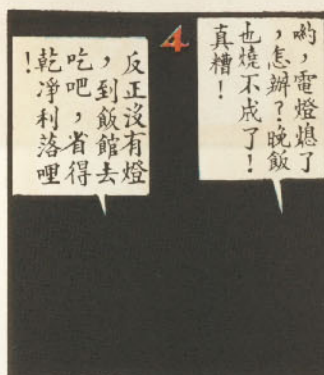 4
喲，電燈熄了
，怎辦？晚飯
也燒不成了！
真糟！
反正沒有燈
，到飯館去
吃吧，省得
乾淨利落哩
！